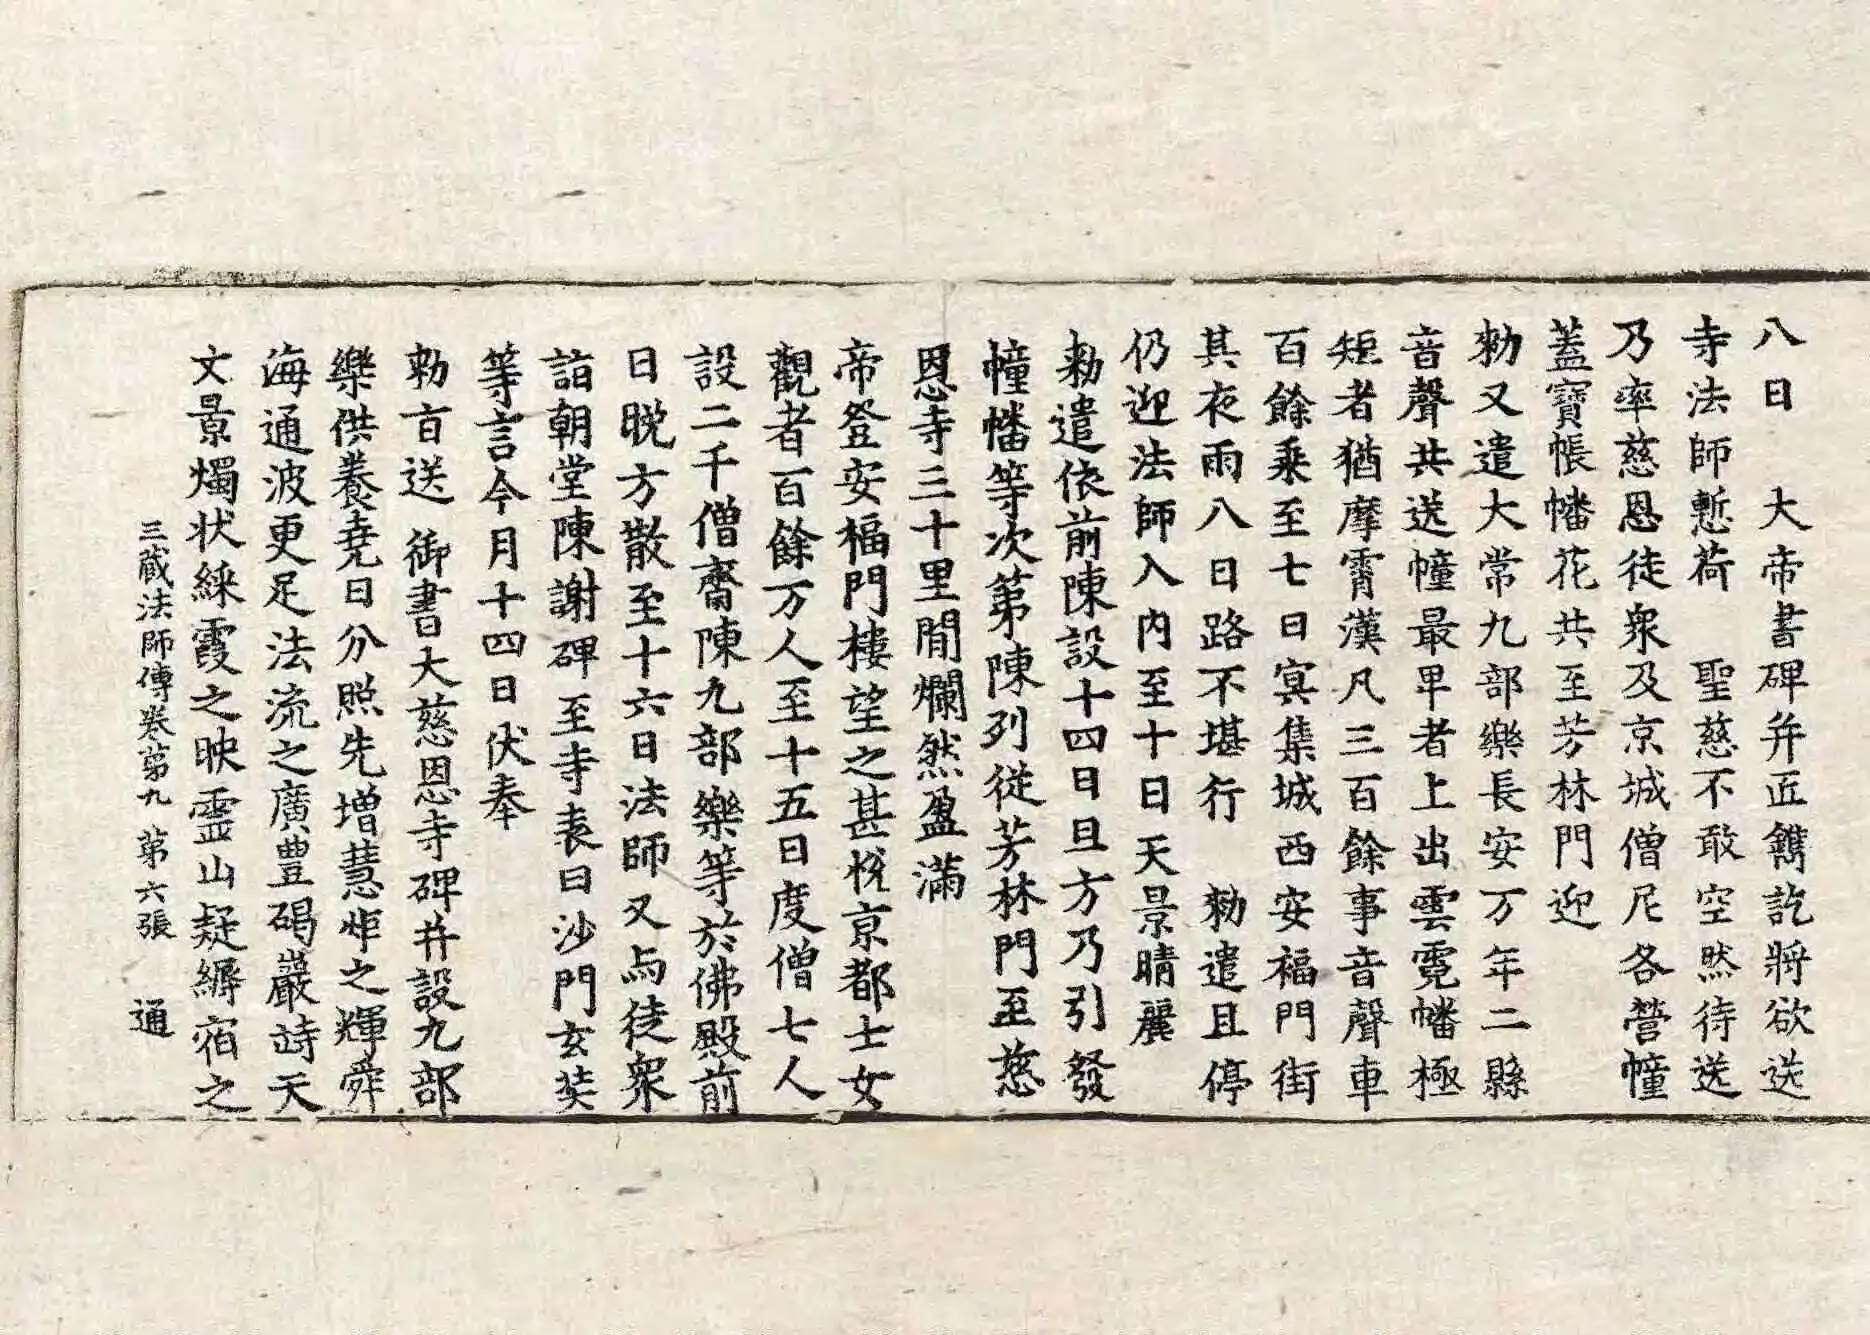 八日　大帝書碑并匠鐫訖將欲送
寺法師慙荷　聖慈不敢空然待送
乃率慈恩徒衆及京城僧尼各營幢
蓋寶帳幡花共至芳林門迎
勑又遣大常九部樂長安万年二縣
音聲共送幢最卑者上出雲霓幡極
短者猶摩霄漢凡三百餘事音聲車
百餘乘至七日冥集城西安福門街
其夜雨八日路不堪行　勑遣且停
仍迎法師入內至十日天景晴麗
勑遣依前陳設十四日旦方乃引發
幢幡等次第陳列從芳林門至慈
恩寺三十里間爛然盈滿
帝登安福門樓望之甚悅京都士女
觀者百餘万人至十五日度僧七人
設二千僧齋陳九部樂等於佛殿前
日晚方散至十六日法師又与徒衆
詣朝堂陳謝碑至寺表曰沙門玄奘
等言今月十四日伏奉
勑旨送　御書大慈恩寺碑并設九部
樂供養堯日分照先增慧炬之輝舜
海通波更足法流之廣豊碣巖峙天
文景燭狀綵霞之映靈山疑縟宿之
三藏法師傳卷苐九　第六張　通